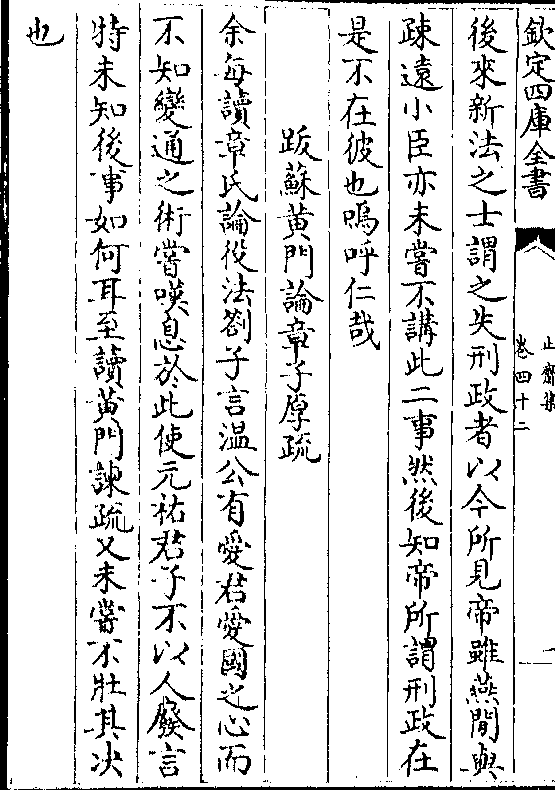 欽定四庫全書
止齋集
卷四十二
後來新法之士謂之失刑政者以今所見帝雖燕閒與
疎遠小臣亦未嘗不講此二事然後知帝所謂刑政在
是不在彼也嗚呼仁哉
跋蘇黃門論章子厚疏
余每讀章氏論役法劄子言溫公有愛君愛國之心而
不知變通之術嘗嘆息於此使元祐君子不以人廢言
特未知後事如何耳至讀黃門諫疏又未嘗不壯其决
也